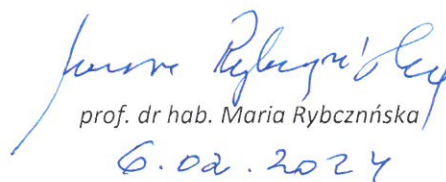 prof. dr hab. Maria Rybcznńska
6.02.2024